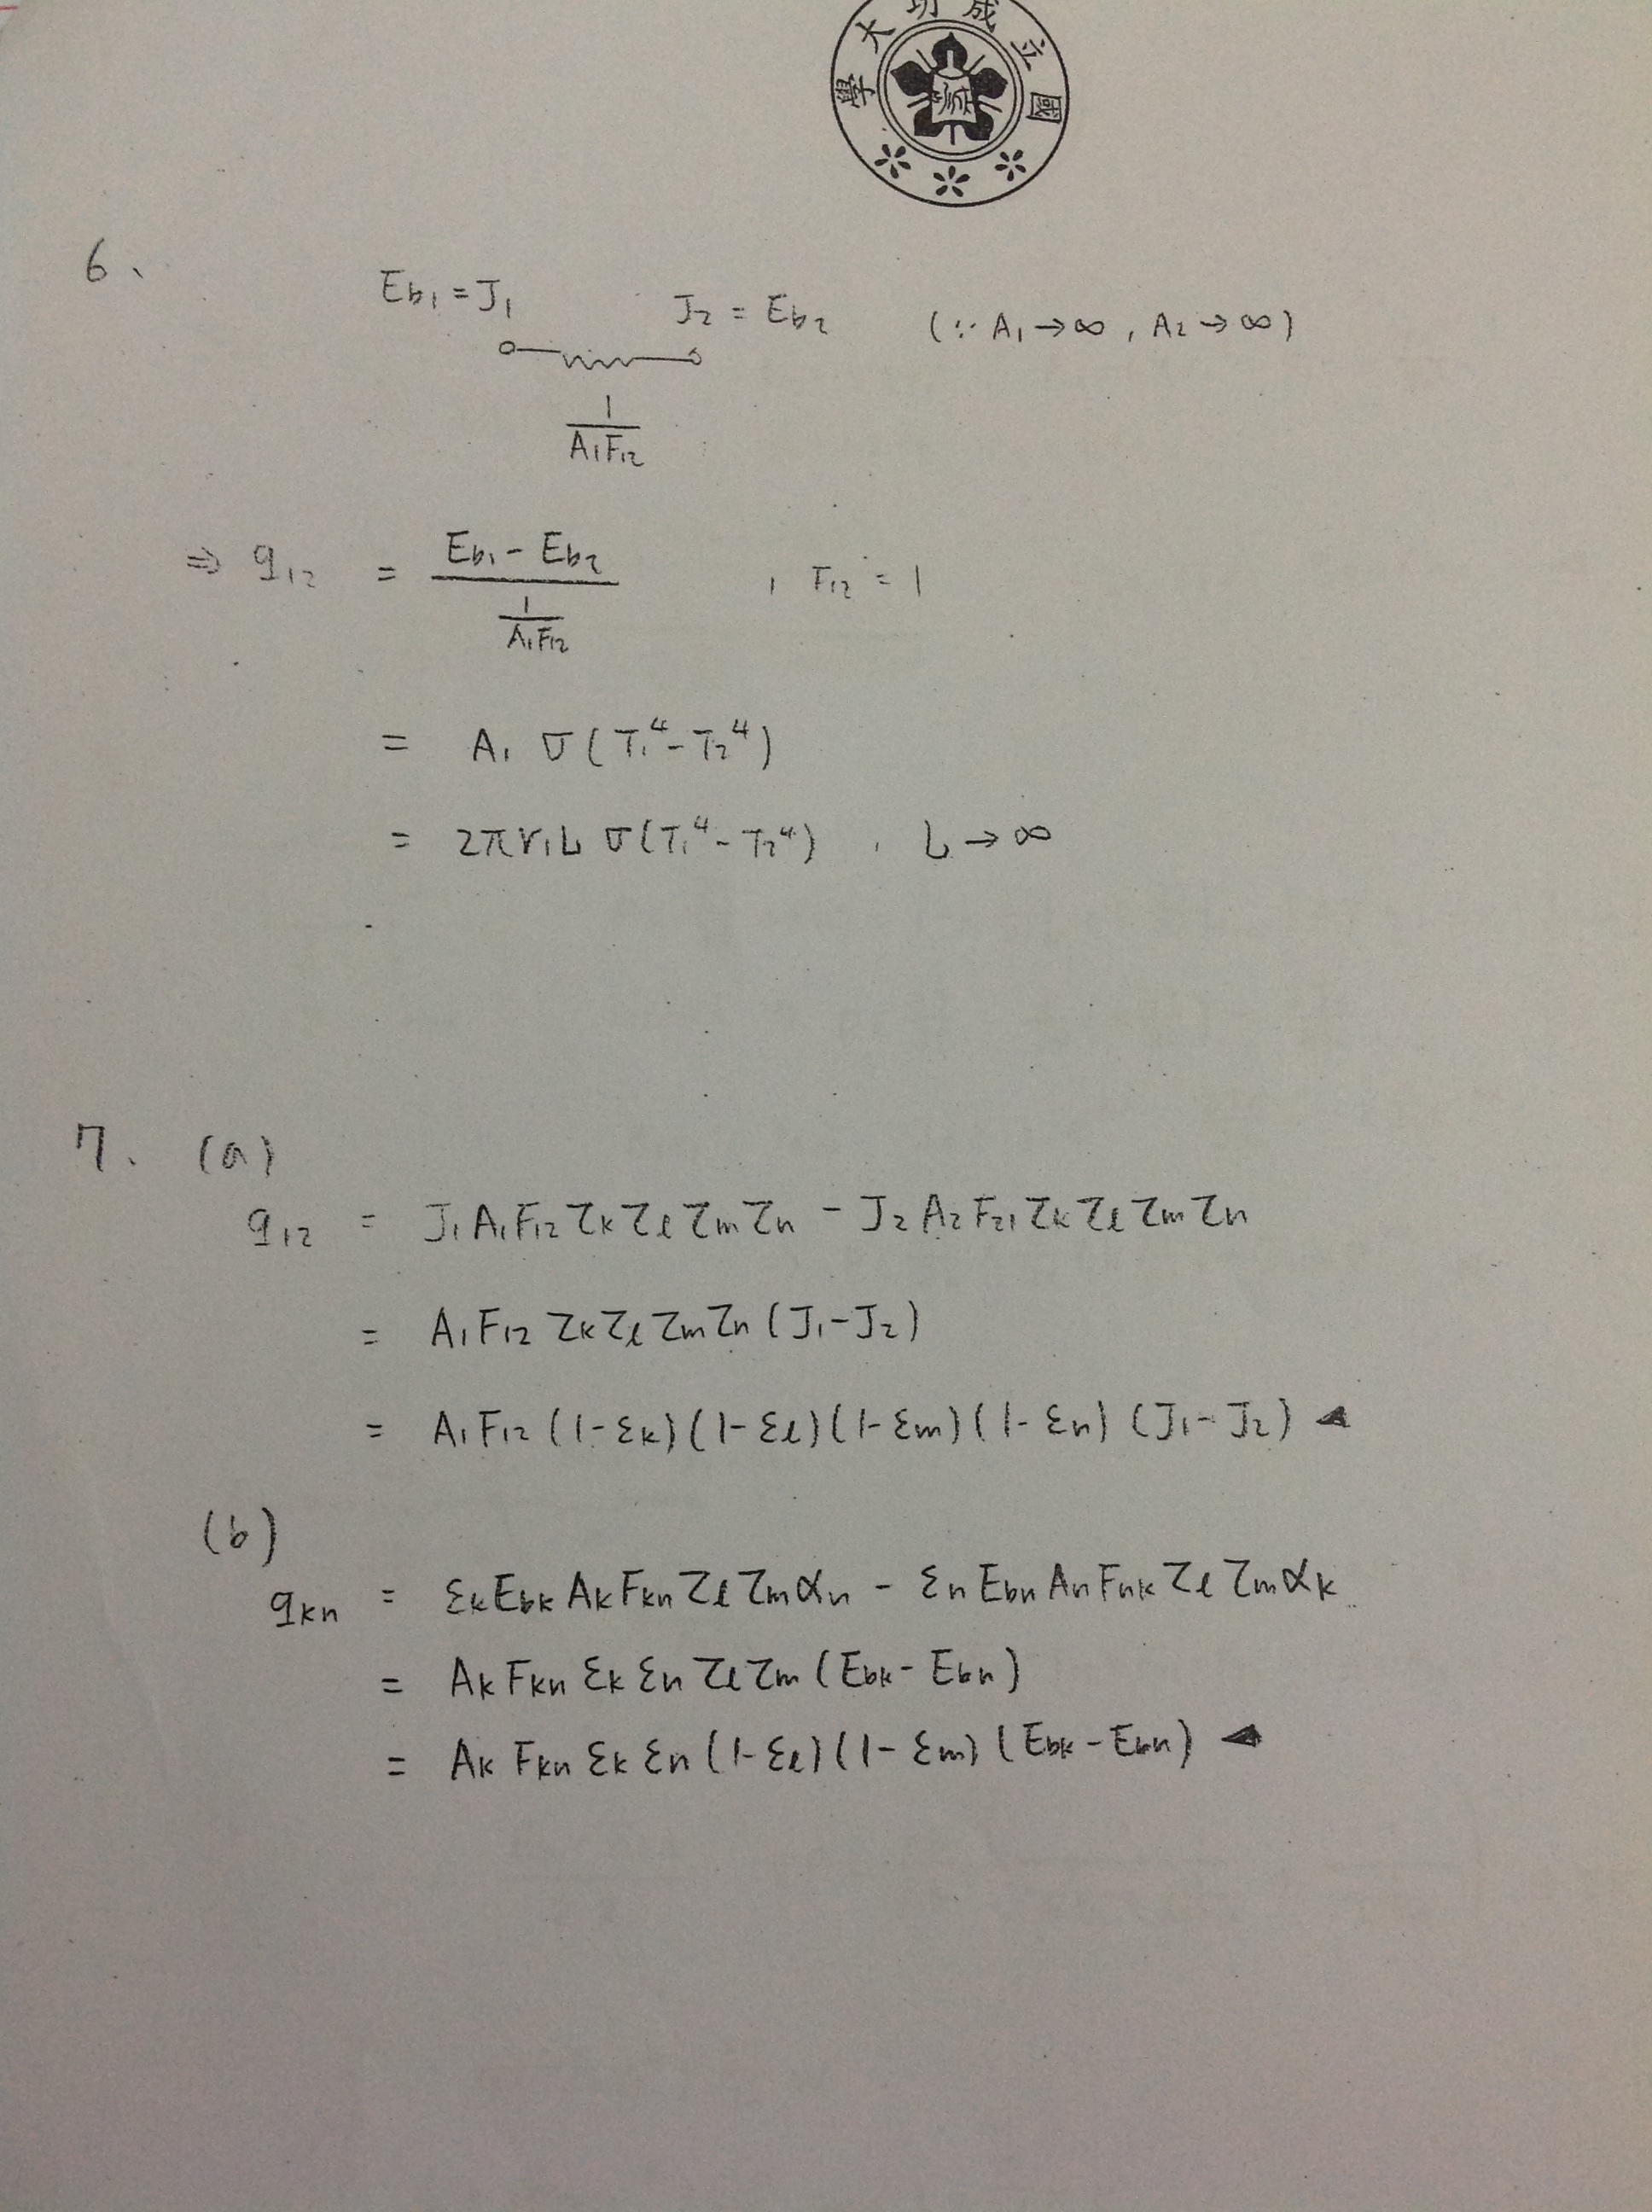 國立成功大學
6、
Eb₁ = J₁ J₂ = Eb₂ (∵ A₁ → ∞ , A₂ → ∞)
1/(A₁F₁₂)
⇒ q₁₂ = (Eb₁ - Eb₂)/(1/(A₁F₁₂)) , F₁₂ = 1
= A₁ σ(T₁⁴ - T₂⁴)
= 2πr₁L σ(T₁⁴ - T₂⁴) , L → ∞
7. (a)
q₁₂ = J₁A₁F₁₂ τₖ τₗ τₘ τₙ - J₂A₂F₂₁ τₖ τₗ τₘ τₙ
= A₁F₁₂ τₖ τₗ τₘ τₙ (J₁ - J₂)
= A₁F₁₂ (1-εₖ)(1-εₗ)(1-εₘ)(1-εₙ) (J₁ - J₂)
(b)
qₖₙ = εₖEbₖ AₖFₖₙ τₗ τₘ αₙ - εₙ Ebₙ AₙFₙₖ τₗ τₘ αₖ
= AₖFₖₙ εₖ εₙ τₗ τₘ (Ebₖ - Ebₙ)
= Aₖ Fₖₙ εₖ εₙ (1-εₗ)(1-εₘ) (Ebₖ - Ebₙ)